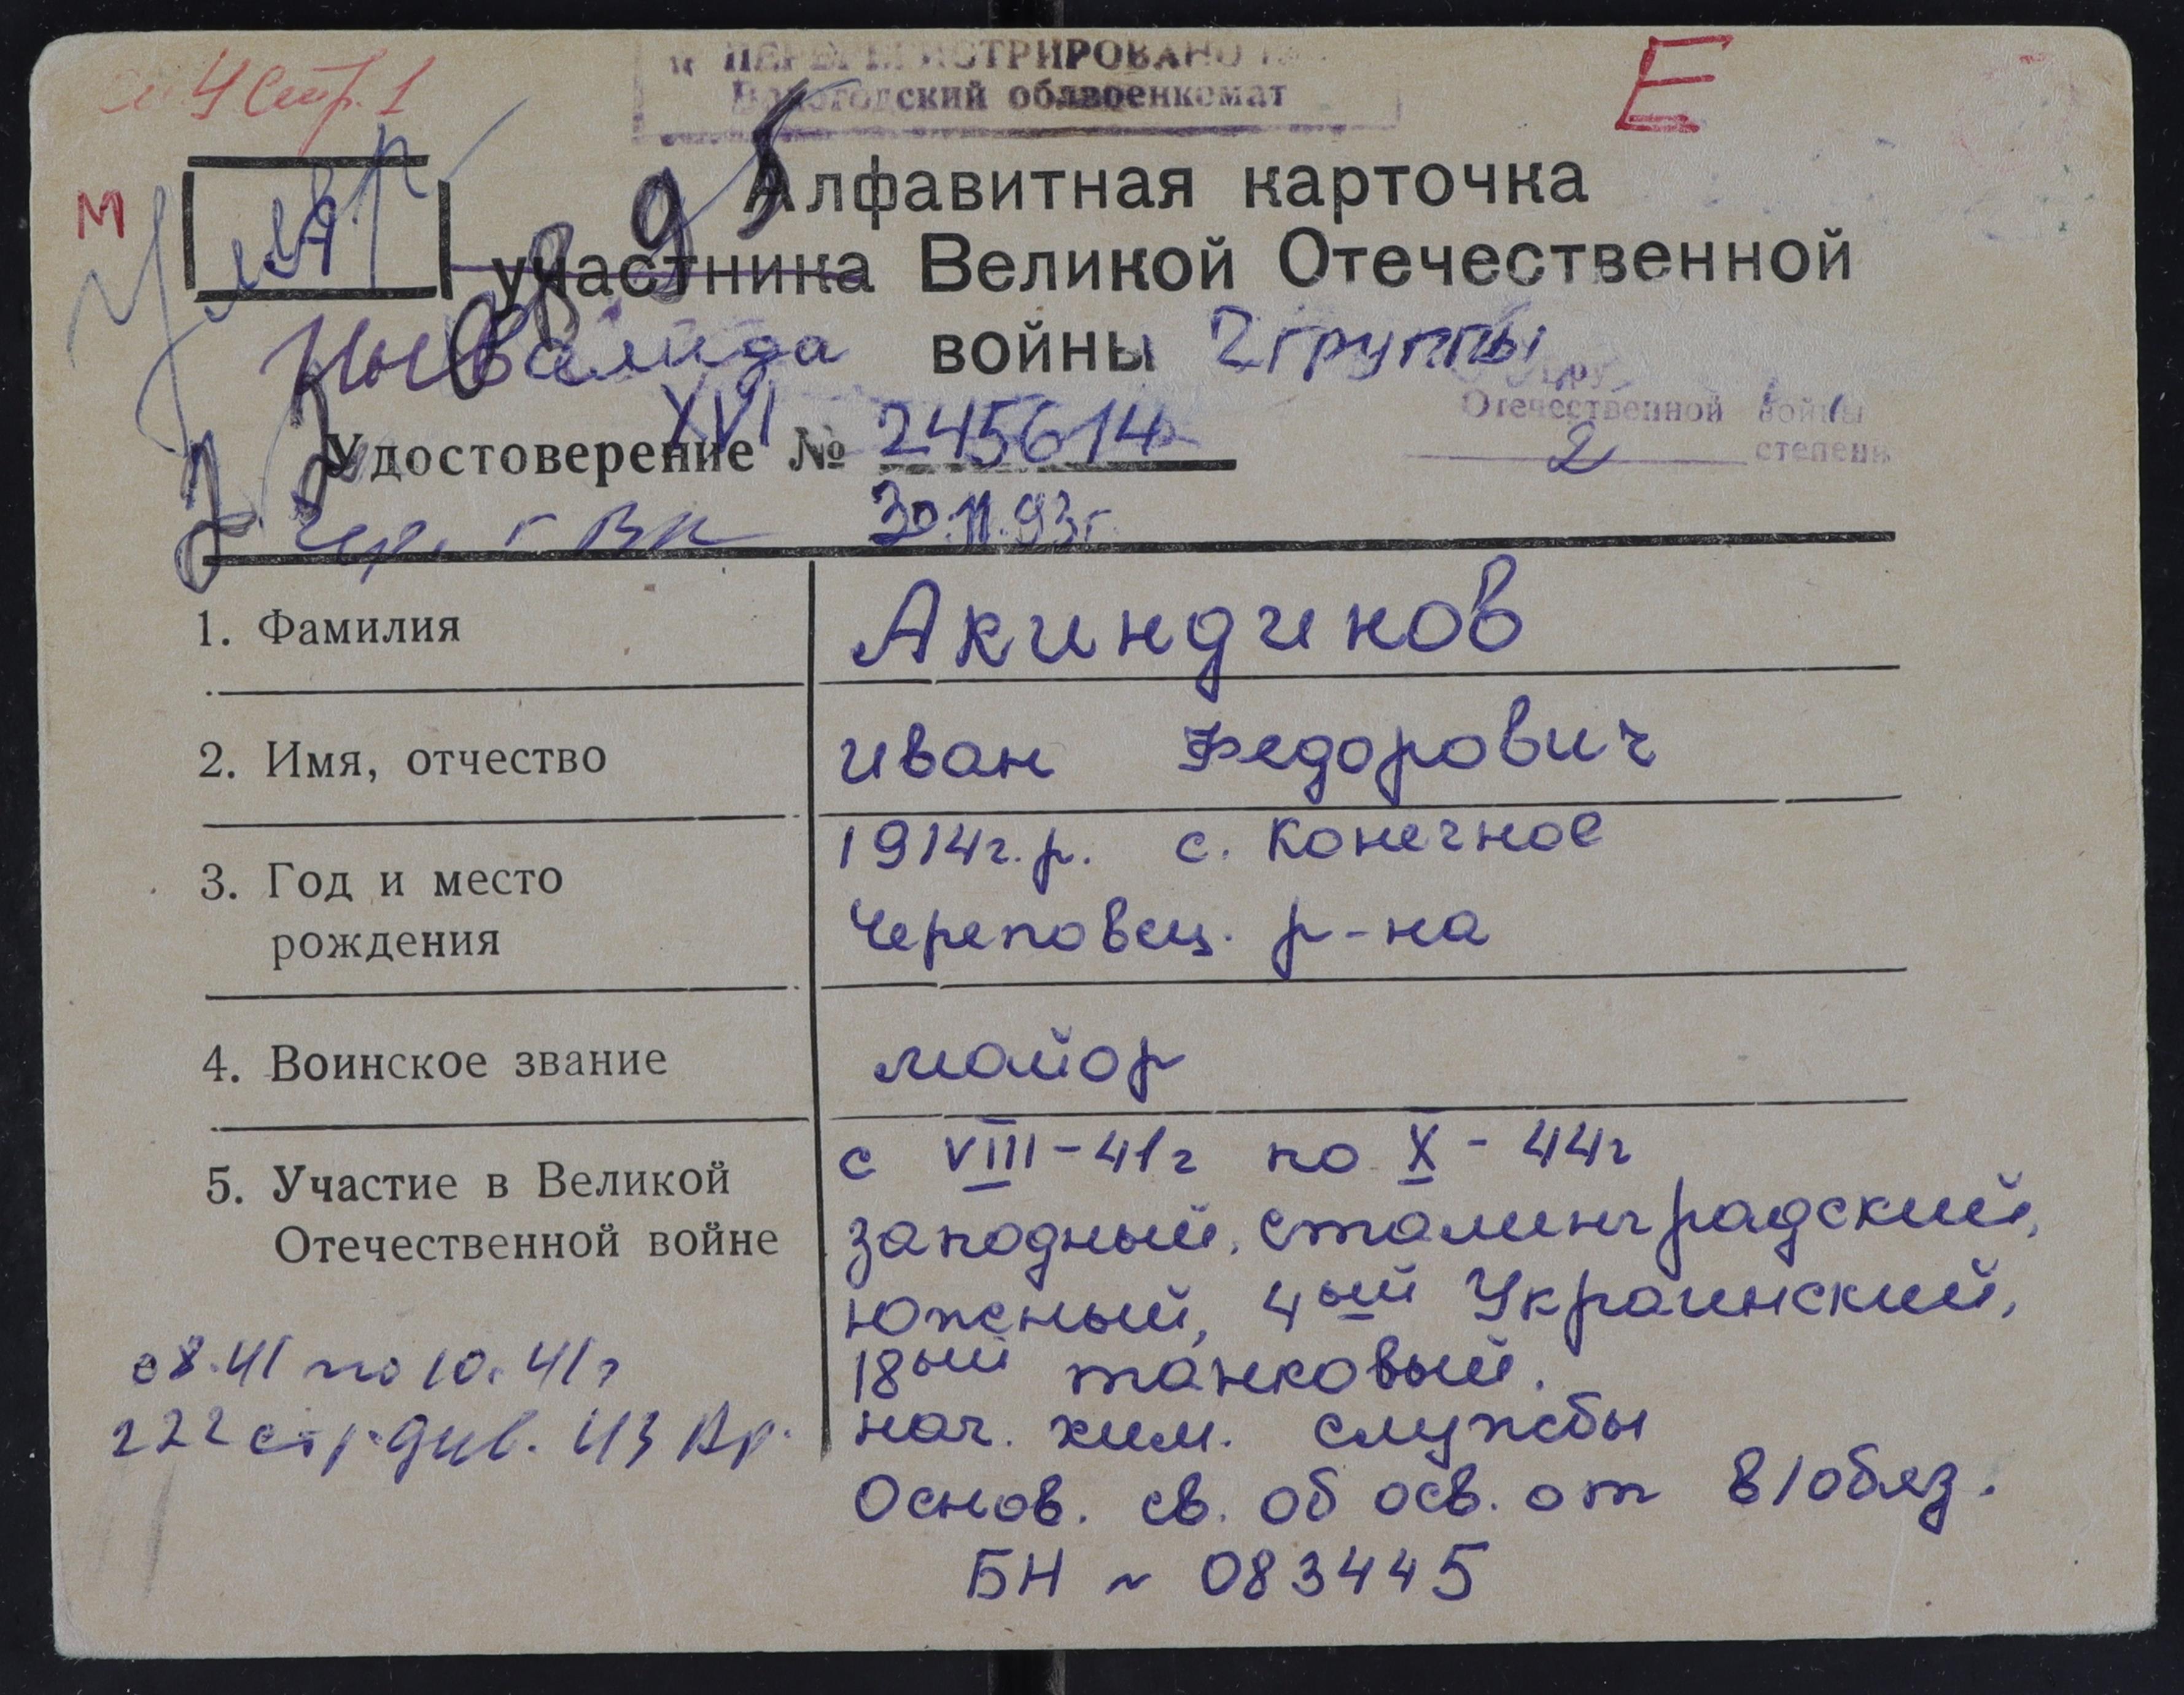 4 стр. 1
ПЕРЕРЕГИСТРИРОВАНО
Вологодский облвоенкомат
Е
М
Алфавитная карточка
участника Великой Отечественной
Инвалида войны 2 группы
Отечественной войны
2 степени
XVI
Удостоверение № 245614
Чер. г. ВК 30.11.93г.
1. Фамилия Акиндинов
2. Имя, отчество Иван Федорович
3. Год и место рождения 1914г.р. с. Конечное
Череповец. р-на
4. Воинское звание майор
5. Участие в Великой Отечественной войне с VIII-41г по X-44г
западный, сталинградский,
южный, 4ый Украинский,
18ый танковый.
нач. хим. службы
Основ. св. об осв. от в/обяз.
БН ~ 083445
с 8.41 по 10.41г
222 стр. див. 43 Ар.